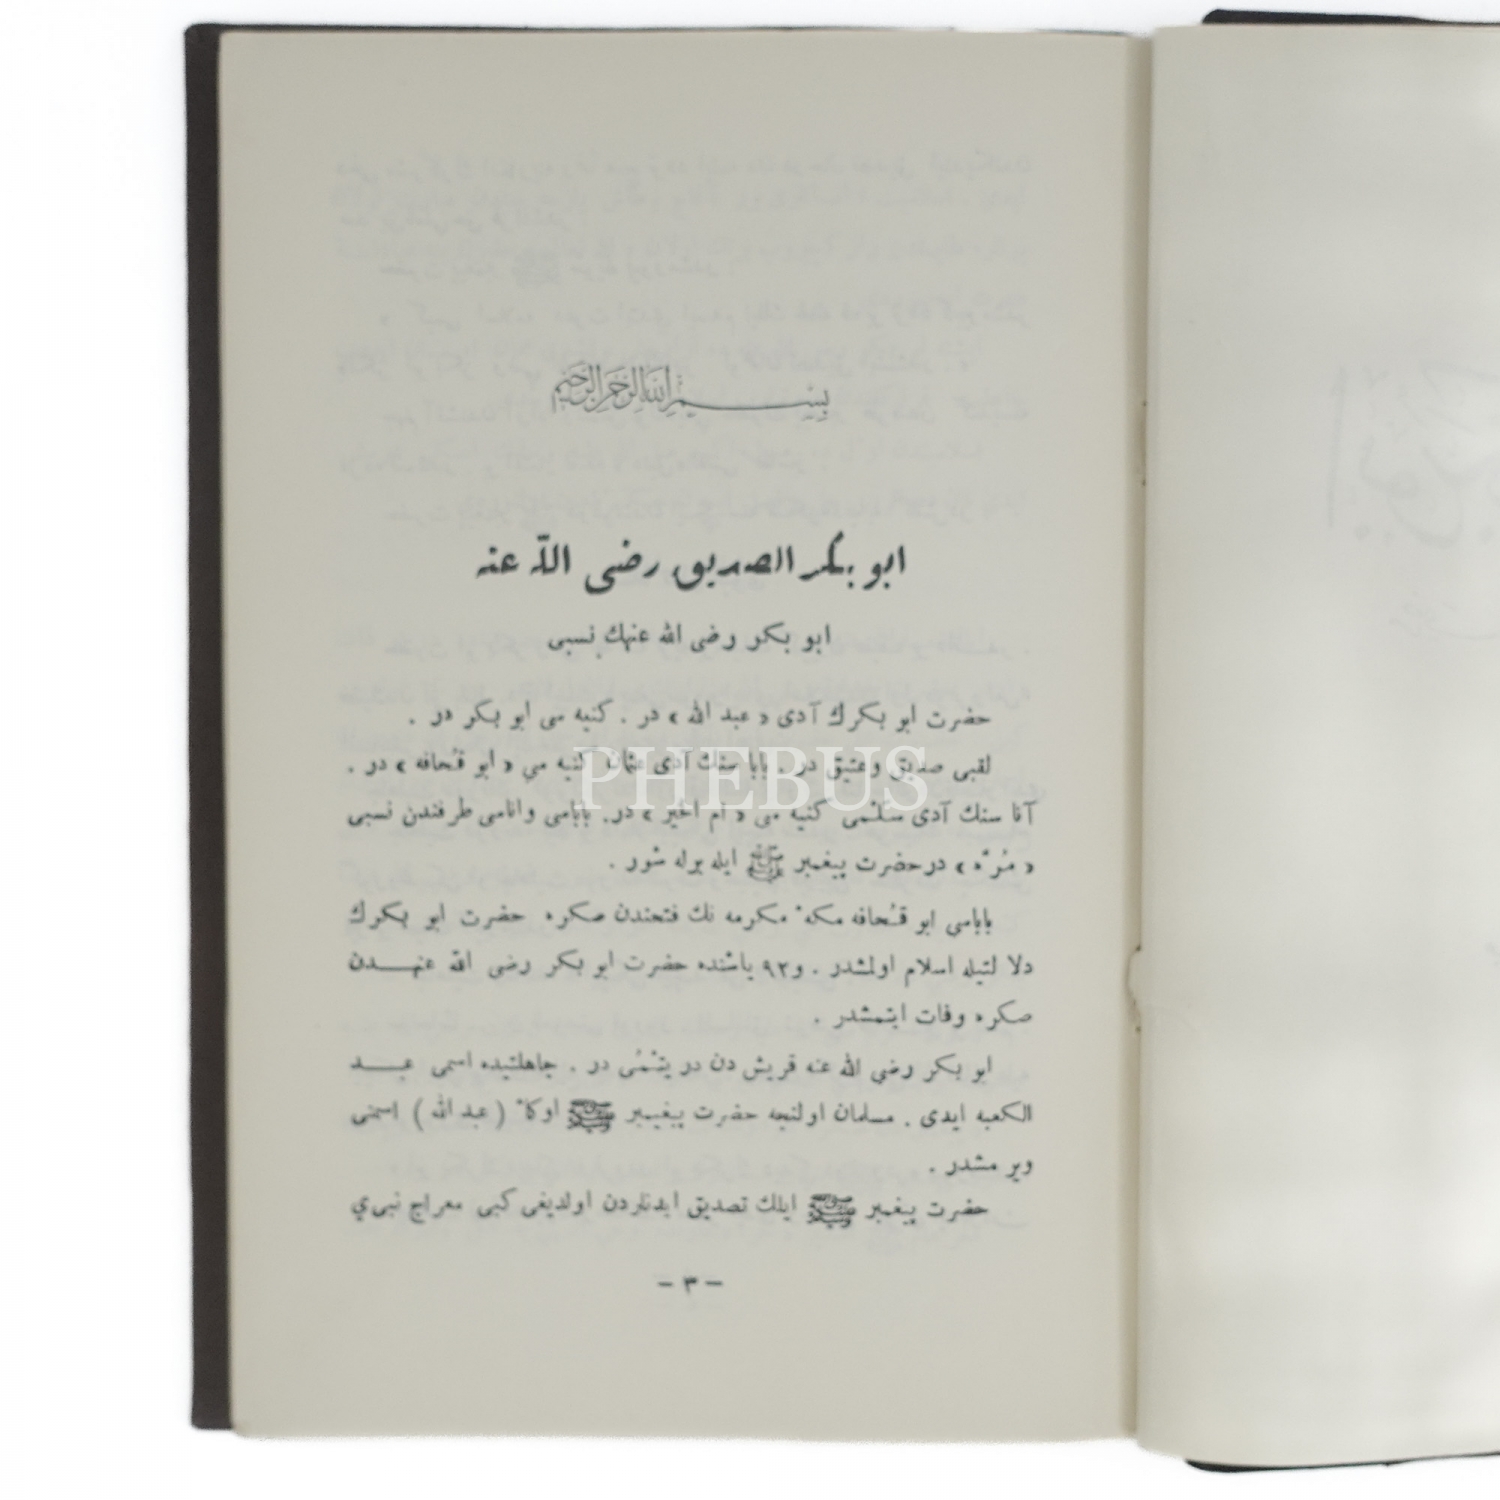 بسم الله الرحمن الرحيم
ابو بكر الصديق رضى الله عنه
ابو بكر رضى الله عنهك نسبى
حضرت ابو بكرك آدى «عبد الله» در . كنيه سى ابو بكر در .
لقبى صديق وعتيق در . بابا سنك آدى عثمان كنيه سي «ابو قُحافه» در .
آنا سنك آدى سَلْمى كنيه سى «ام الخير» در. باباسى واناسى طرفندن نسبى
«مُرّه» در حضرت پيغمبر ﷺ ايله برله شور .
باباسي ابو قُحافه مكهٔ مكرمه نك فتحندن صكره حضرت ابو بكرك
دلا لتيله اسلام اولمشدر . و٩٣ ياشنده حضرت ابو بكر رضى الله عنهــدن
صكره وفات ايتمشدر .
ابو بكر رضي الله عنه قريش دن در يتْمُى در . جاهلتيده اسمى عبــد
الكعبه ايدى . مسلمان اولنجه حضرت پيغيمبر ﷺ اوكا (عبد الله) اسمنى
وير مشدر .
حضرت پيغمبر ﷺ ايلك تصديق ايدنلردن اولديغى كبى معراج نبىي
– ٣ –
PHEBUS